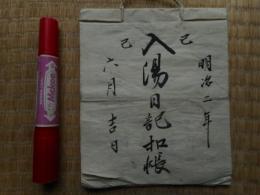 明治二年
己
入湯日記扣帳
巳
六月吉日